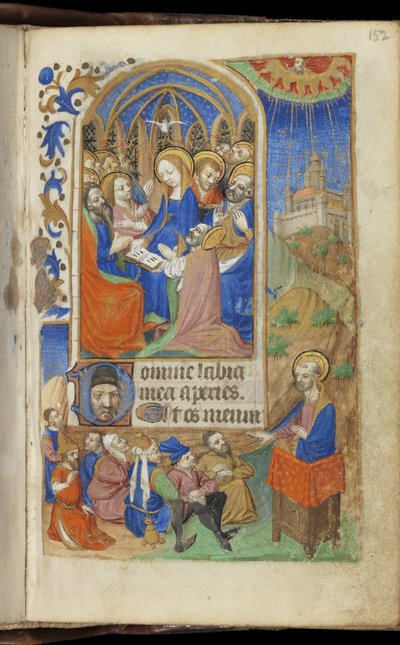 152
Domine labia
mea aperies.
Et os meum